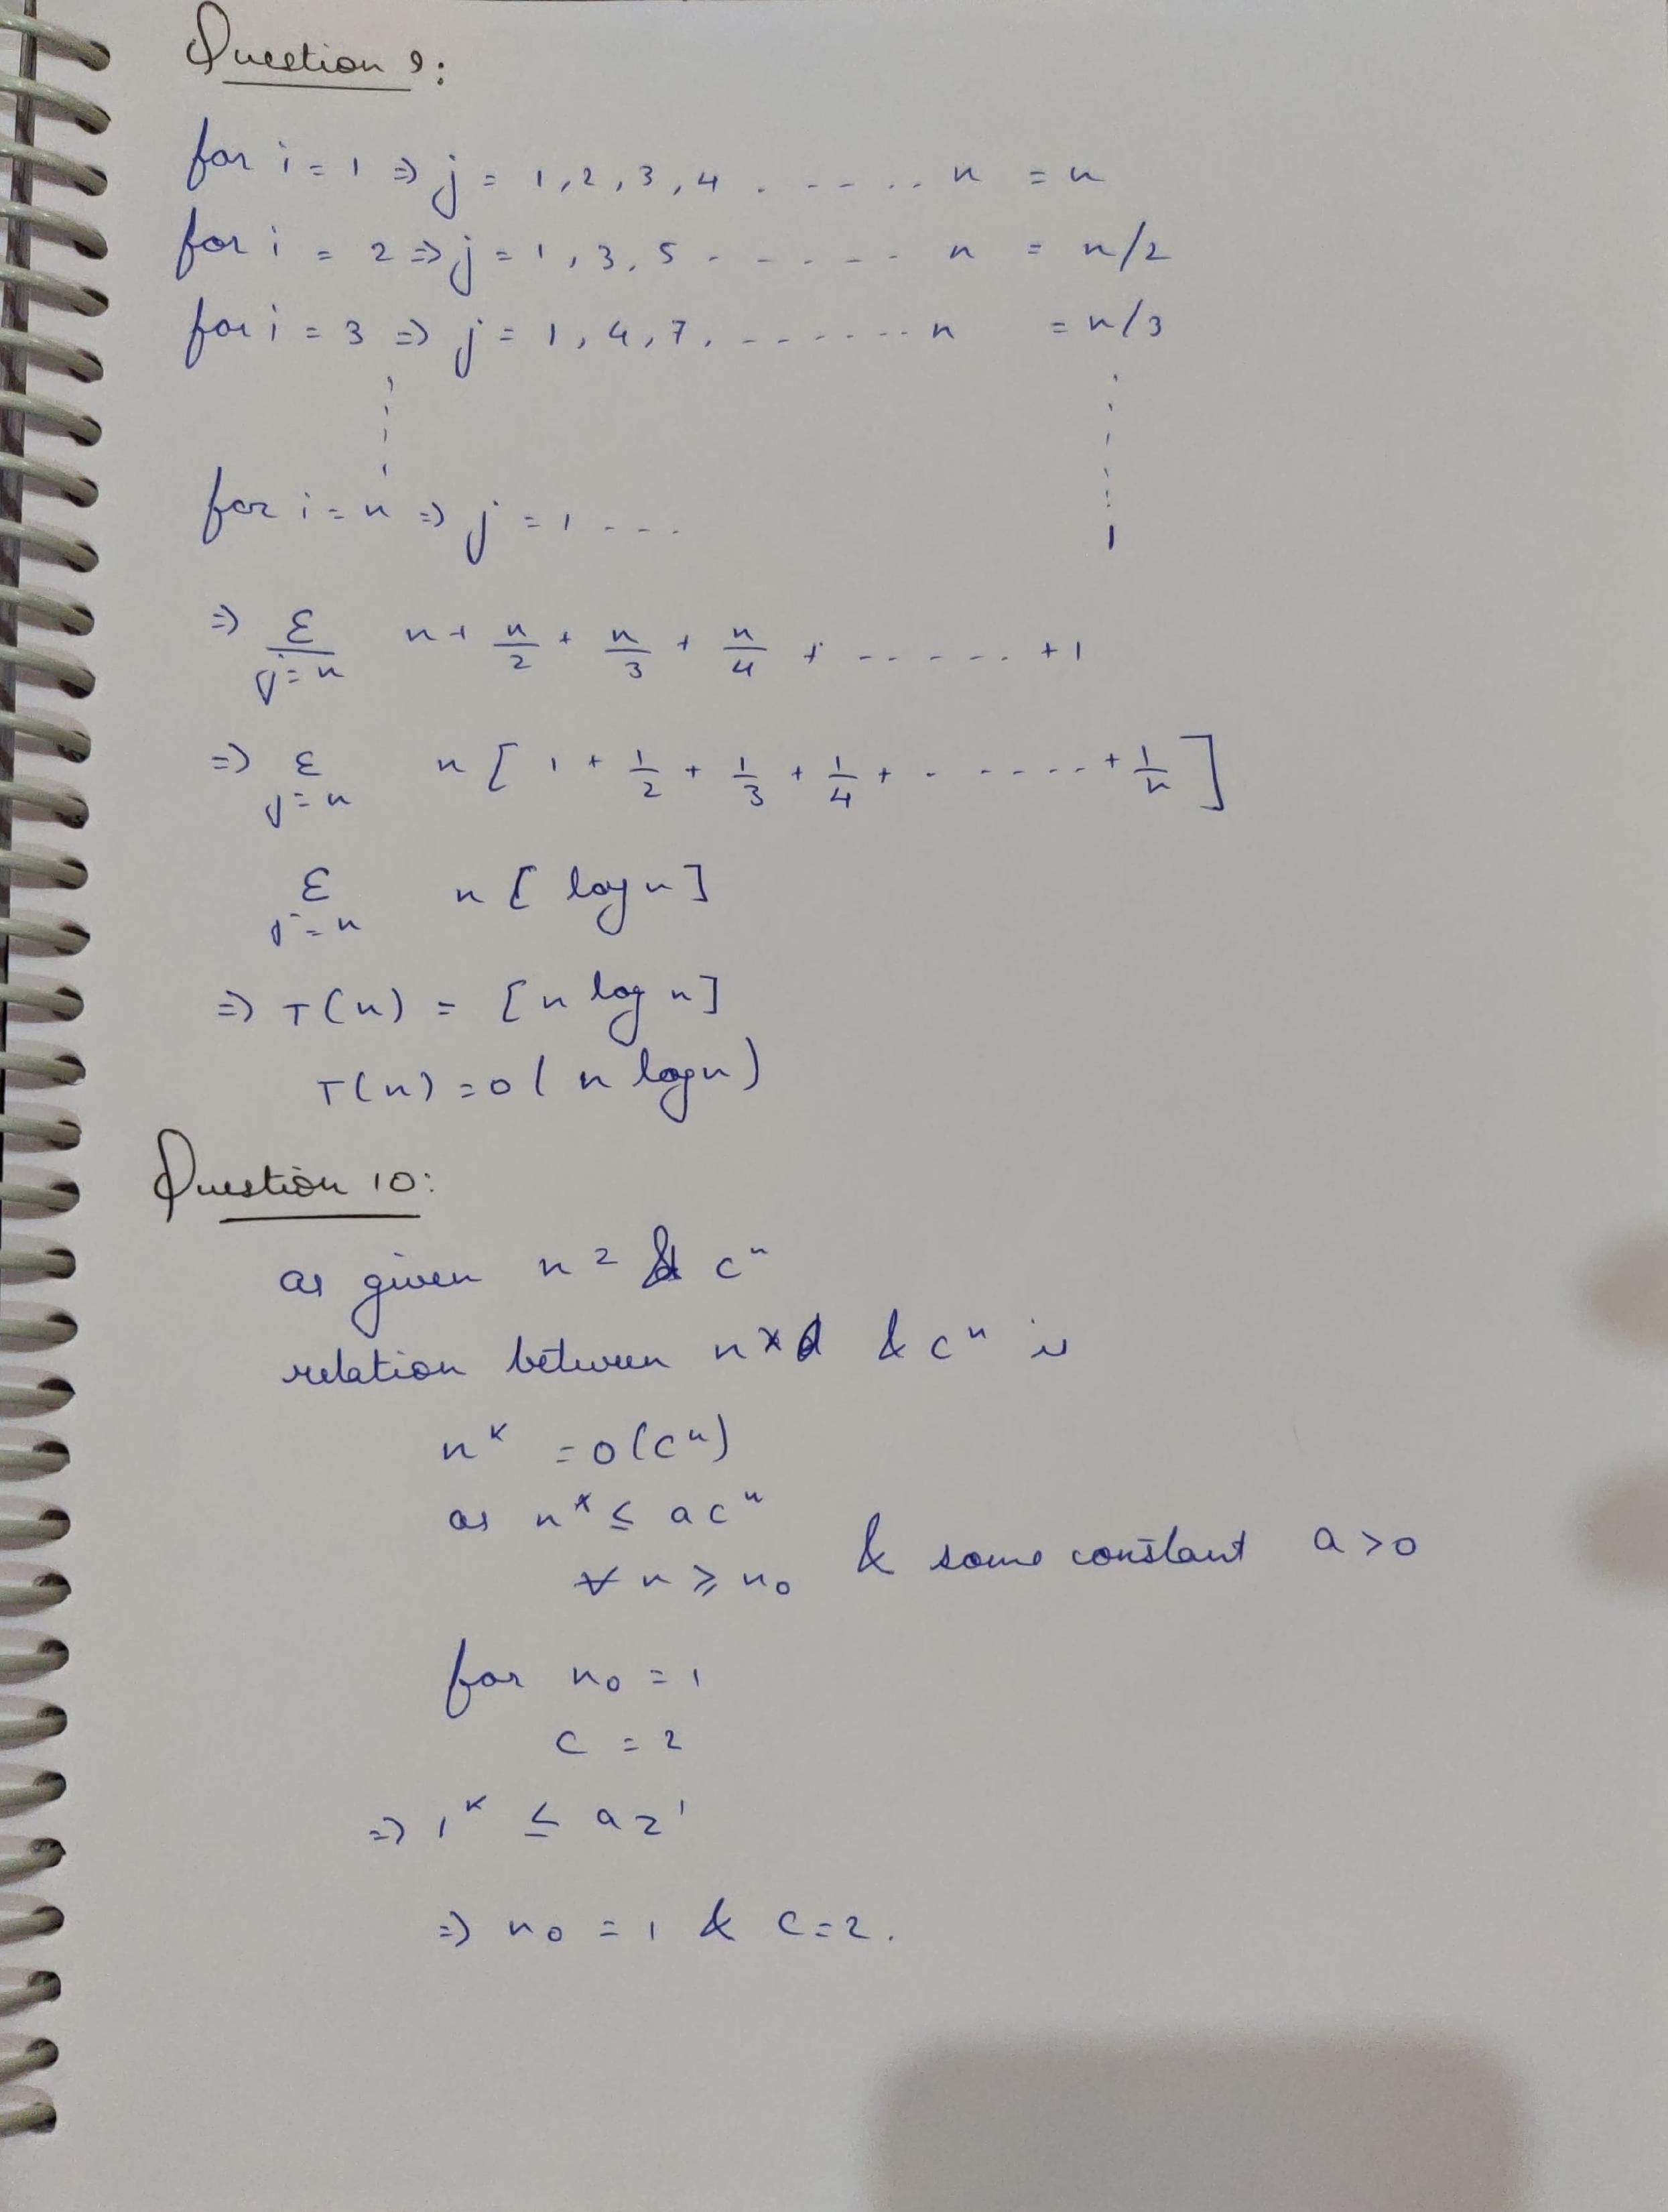 Question 9:
for i = 1 ⇒ j = 1, 2, 3, 4 . - - - . . n = n
for i = 2 ⇒ j = 1, 3, 5 . - - . - - . n = n/2
for i = 3 ⇒ j = 1, 4, 7, . - - - - - . . n = n/3
for i = n ⇒ j = 1 - - - 1
⇒ Σ j=n n + n/2 + n/3 + n/4 + - - - - - . + 1
⇒ Σ j=n n [ 1 + 1/2 + 1/3 + 1/4 + . - - - - . + 1/n ]
Σ j=n n [ log n ]
⇒ T(n) = [ n log n ]
T(n) = O( n log n )
Question 10:
as given n² & cⁿ
relation between nᵏ & cⁿ is
nᵏ = O(cⁿ)
as nᵏ ≤ a cⁿ
∀ n ≥ n₀ & some constant a > 0
for n₀ = 1
c = 2
⇒ 1ᵏ ≤ a 2¹
⇒ n₀ = 1 & c = 2.